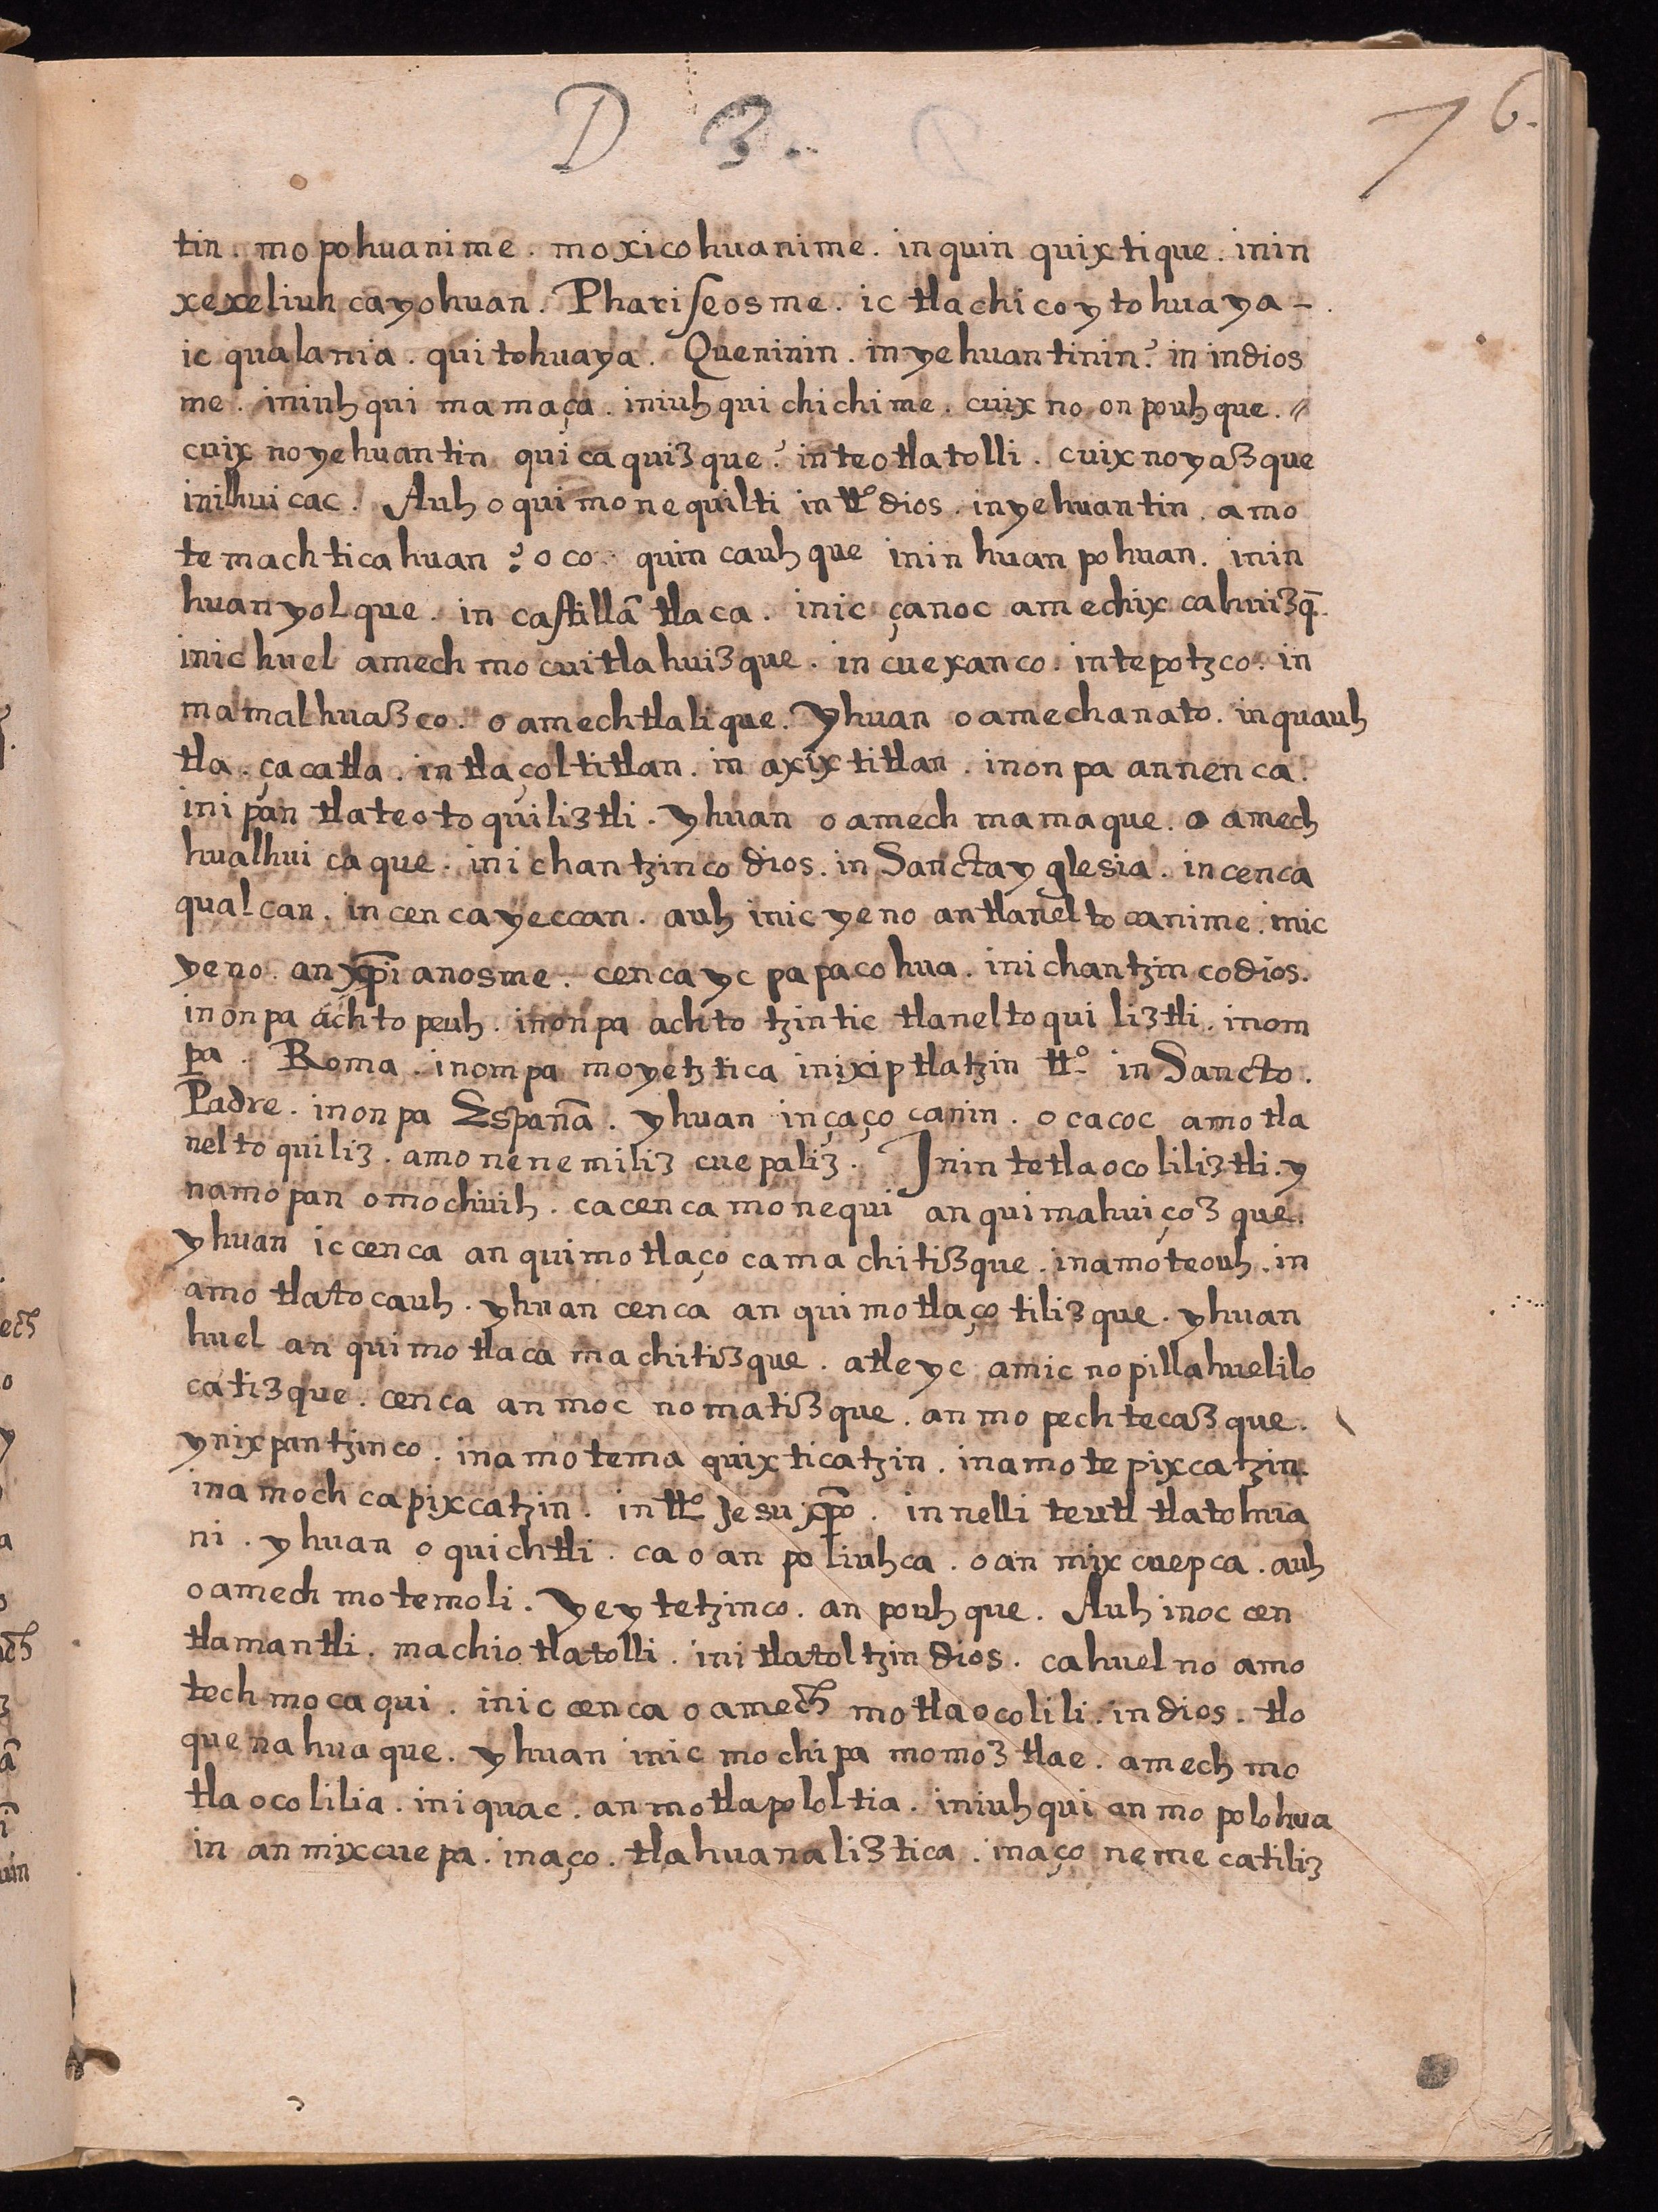 D 3.
76.
tin. mo pohuanime. moxicohuanime. in quin quixtique. inin
xexeliuh cayohuan. Phariseosme. ic tlachicoytohuaya -.
ic qualania. quitohuaya. Queninin. inyehuantinin? in indios
me. iniuhqui mamaça. iniuhqui chichime. cuix no on pouhque. //
cuix noyehuantin quicaquizque? inteotlatolli. cuix noyazque
inilhuicac. Auh o quimonequilti in tt.º dios. inyehuantin. amo
temachticahuan? oco. quin cauhque inin huanpohuan. inin
huanyolque. in castillã tlaca. inic çanoc amechix cahuizq̃.
inic huel amechmocuitlahuizque. in cuexanco. intepotzco. in
mamalhuazco. oamechtlalique. Yhuan oamechanato. inquauh
tla. çacatla. in tlaçoltitlan. in axixtitlan. inonpa annenca.
inipan tlateotoquiliztli. Yhuan oamech mamaque. o amech
hualhuicaque. inichantzinco dios. in Sancta yglesia. in cenca
qualcan. in cenca yeccan. auh inic yeno antlaneltocanime. inic
yeno. anxp̃ianosme. cenca yc papacohua. inichantzinco dios.
inonpa achto peuh. inonpa achto tzintic tlaneltoquiliztli. inom
pa. Roma. inompa moyetztica inixiptlatzin tt.º in Sancto.
Padre. inonpa Españã. yhuan inçaço canin. ocacoc amotla
neltoquiliz. amonenemiliz cuepaliz. Inin tetlaocoliliztli. y
namopan omochiuh. ca cenca monequi anquimahuiçozque.
yhuan ic cenca anquimotlaçocamachitizque. inamoteouh. in
amotlatocauh. yhuan cenca anquimotlaçotilizque. yhuan
huel anquimotlacamachitizque. atleyc amicnopillahuelilo
catizque. cenca anmocnomatizque. anmopechtecazque.
ynixpantzinco. inamotemaquixticatzin. inamotepixcatzin.
inamochcapixcatzin. in tt.º Jesu xp̃o. in nelli teutl tlatohua
ni. yhuan oquichtli. ca oan poliuhca. oan mixcuepca. auh
oamech motemoli. Yeytetzinco. an pouhque. Auh inoc cen
tlamantli. machiotlatolli. initlatoltzin dios. cahuel no amo
tech mocaqui. inic cenca oamech motlaocolili. in dios. tlo
quenahuaque. yhuan inic mochipa momoztlae. amech mo
tlaocolilia. iniquac. anmotlapololtia. iniuhqui anmopolohua
in anmixcuepa. inaço. tlahuanaliztica. inaço nemecatiliz